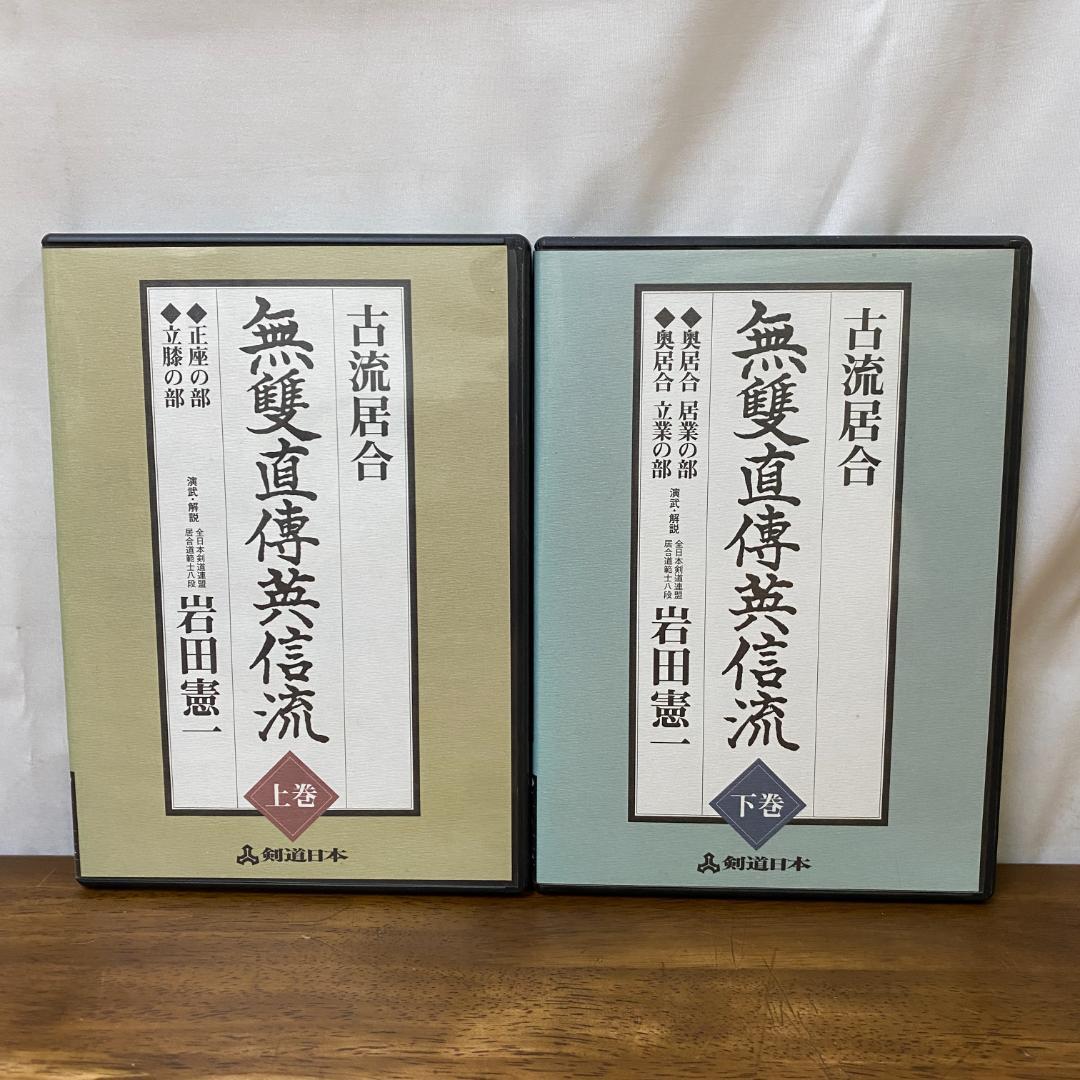 古流居合
無雙直傳英信流
◆正座の部
◆立膝の部
演武・解説
全日本剣道連盟
居合道範士八段
岩田憲一
上巻
剣道日本
古流居合
無雙直傳英信流
◆奥居合 居業の部
◆奥居合 立業の部
演武・解説
全日本剣道連盟
居合道範士八段
岩田憲一
下巻
剣道日本